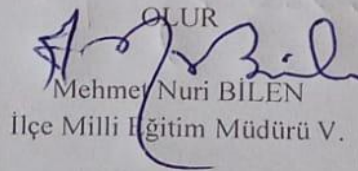 OLUR
Mehmet Nuri BİLEN
İlçe Milli Eğitim Müdürü V.